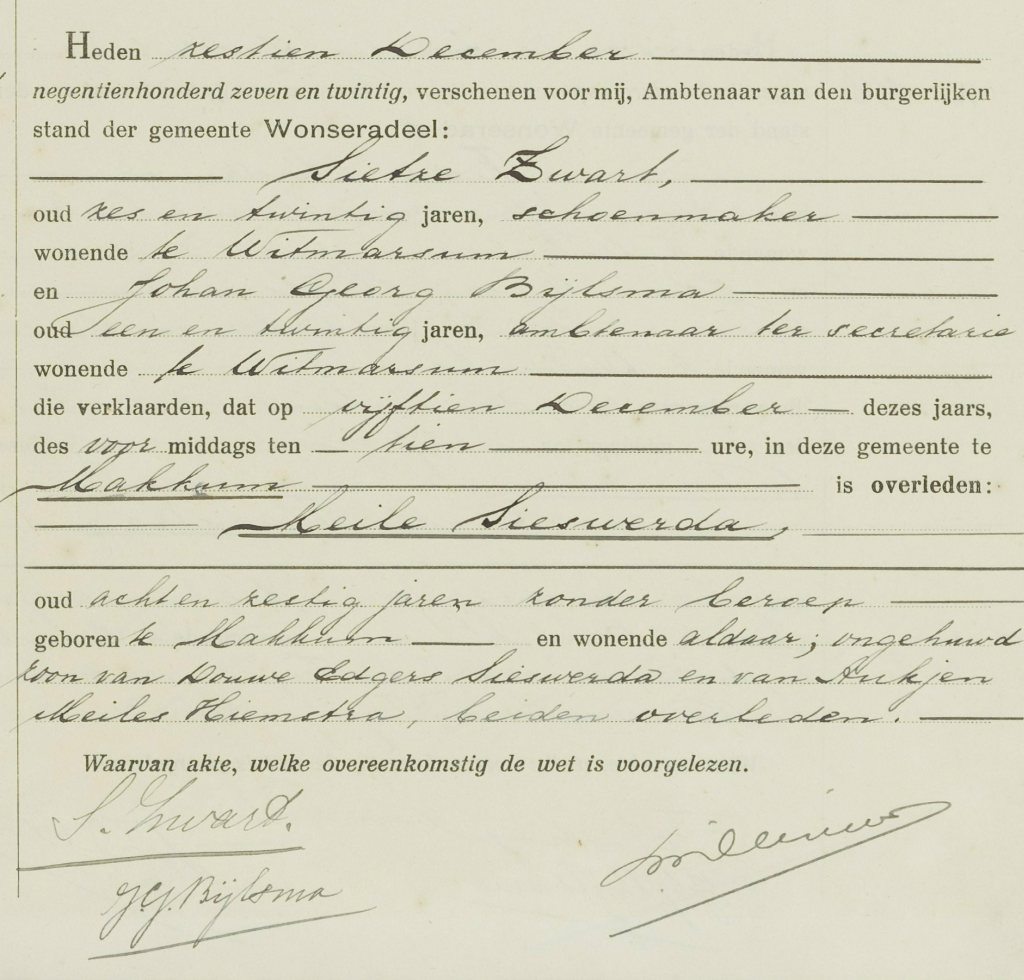 Heden zestien December
negentienhonderd zeven en twintig, verschenen voor mij, Ambtenaar van den burgerlijken
stand der gemeente Wonseradeel:
Sietze Zwart,
oud zes en twintig jaren, schoenmaker
wonende te Witmarsum
en Johan Georg Bijlsma
oud een en twintig jaren, ambtenaar ter secretarie
wonende te Witmarsum
die verklaarden, dat op vijftien December dezes jaars,
des voor middags ten tien ure, in deze gemeente te
Makkum is overleden:
Meile Sieswerda,
oud acht en zestig jaren zonder beroep
geboren te Makkum en wonende aldaar; ongehuwd
zoon van Douwe Edgers Sieswerda en van Aukjen
Meiles Hiemstra, beiden overleden.
Waarvan akte, welke overeenkomstig de wet is voorgelezen.
S. Zwart.
J.G. Bijlsma